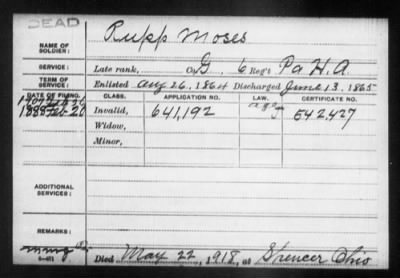 DEAD
NAME OF SOLDIER: Rupp Moses
SERVICE: Late rank, Co G, 6 Reg't Pa H.A.
TERM OF SERVICE: Enlisted Aug 26, 1864 Discharged June 13, 1865
DATE OF FILING. CLASS. APPLICATION NO. LAW. CERTIFICATE NO.
1888 Feb 20 Invalid, 641,192 542,427
Widow,
Minor,
ADDITIONAL SERVICES:
REMARKS:
Died May 22, 1918, at Spencer Ohio